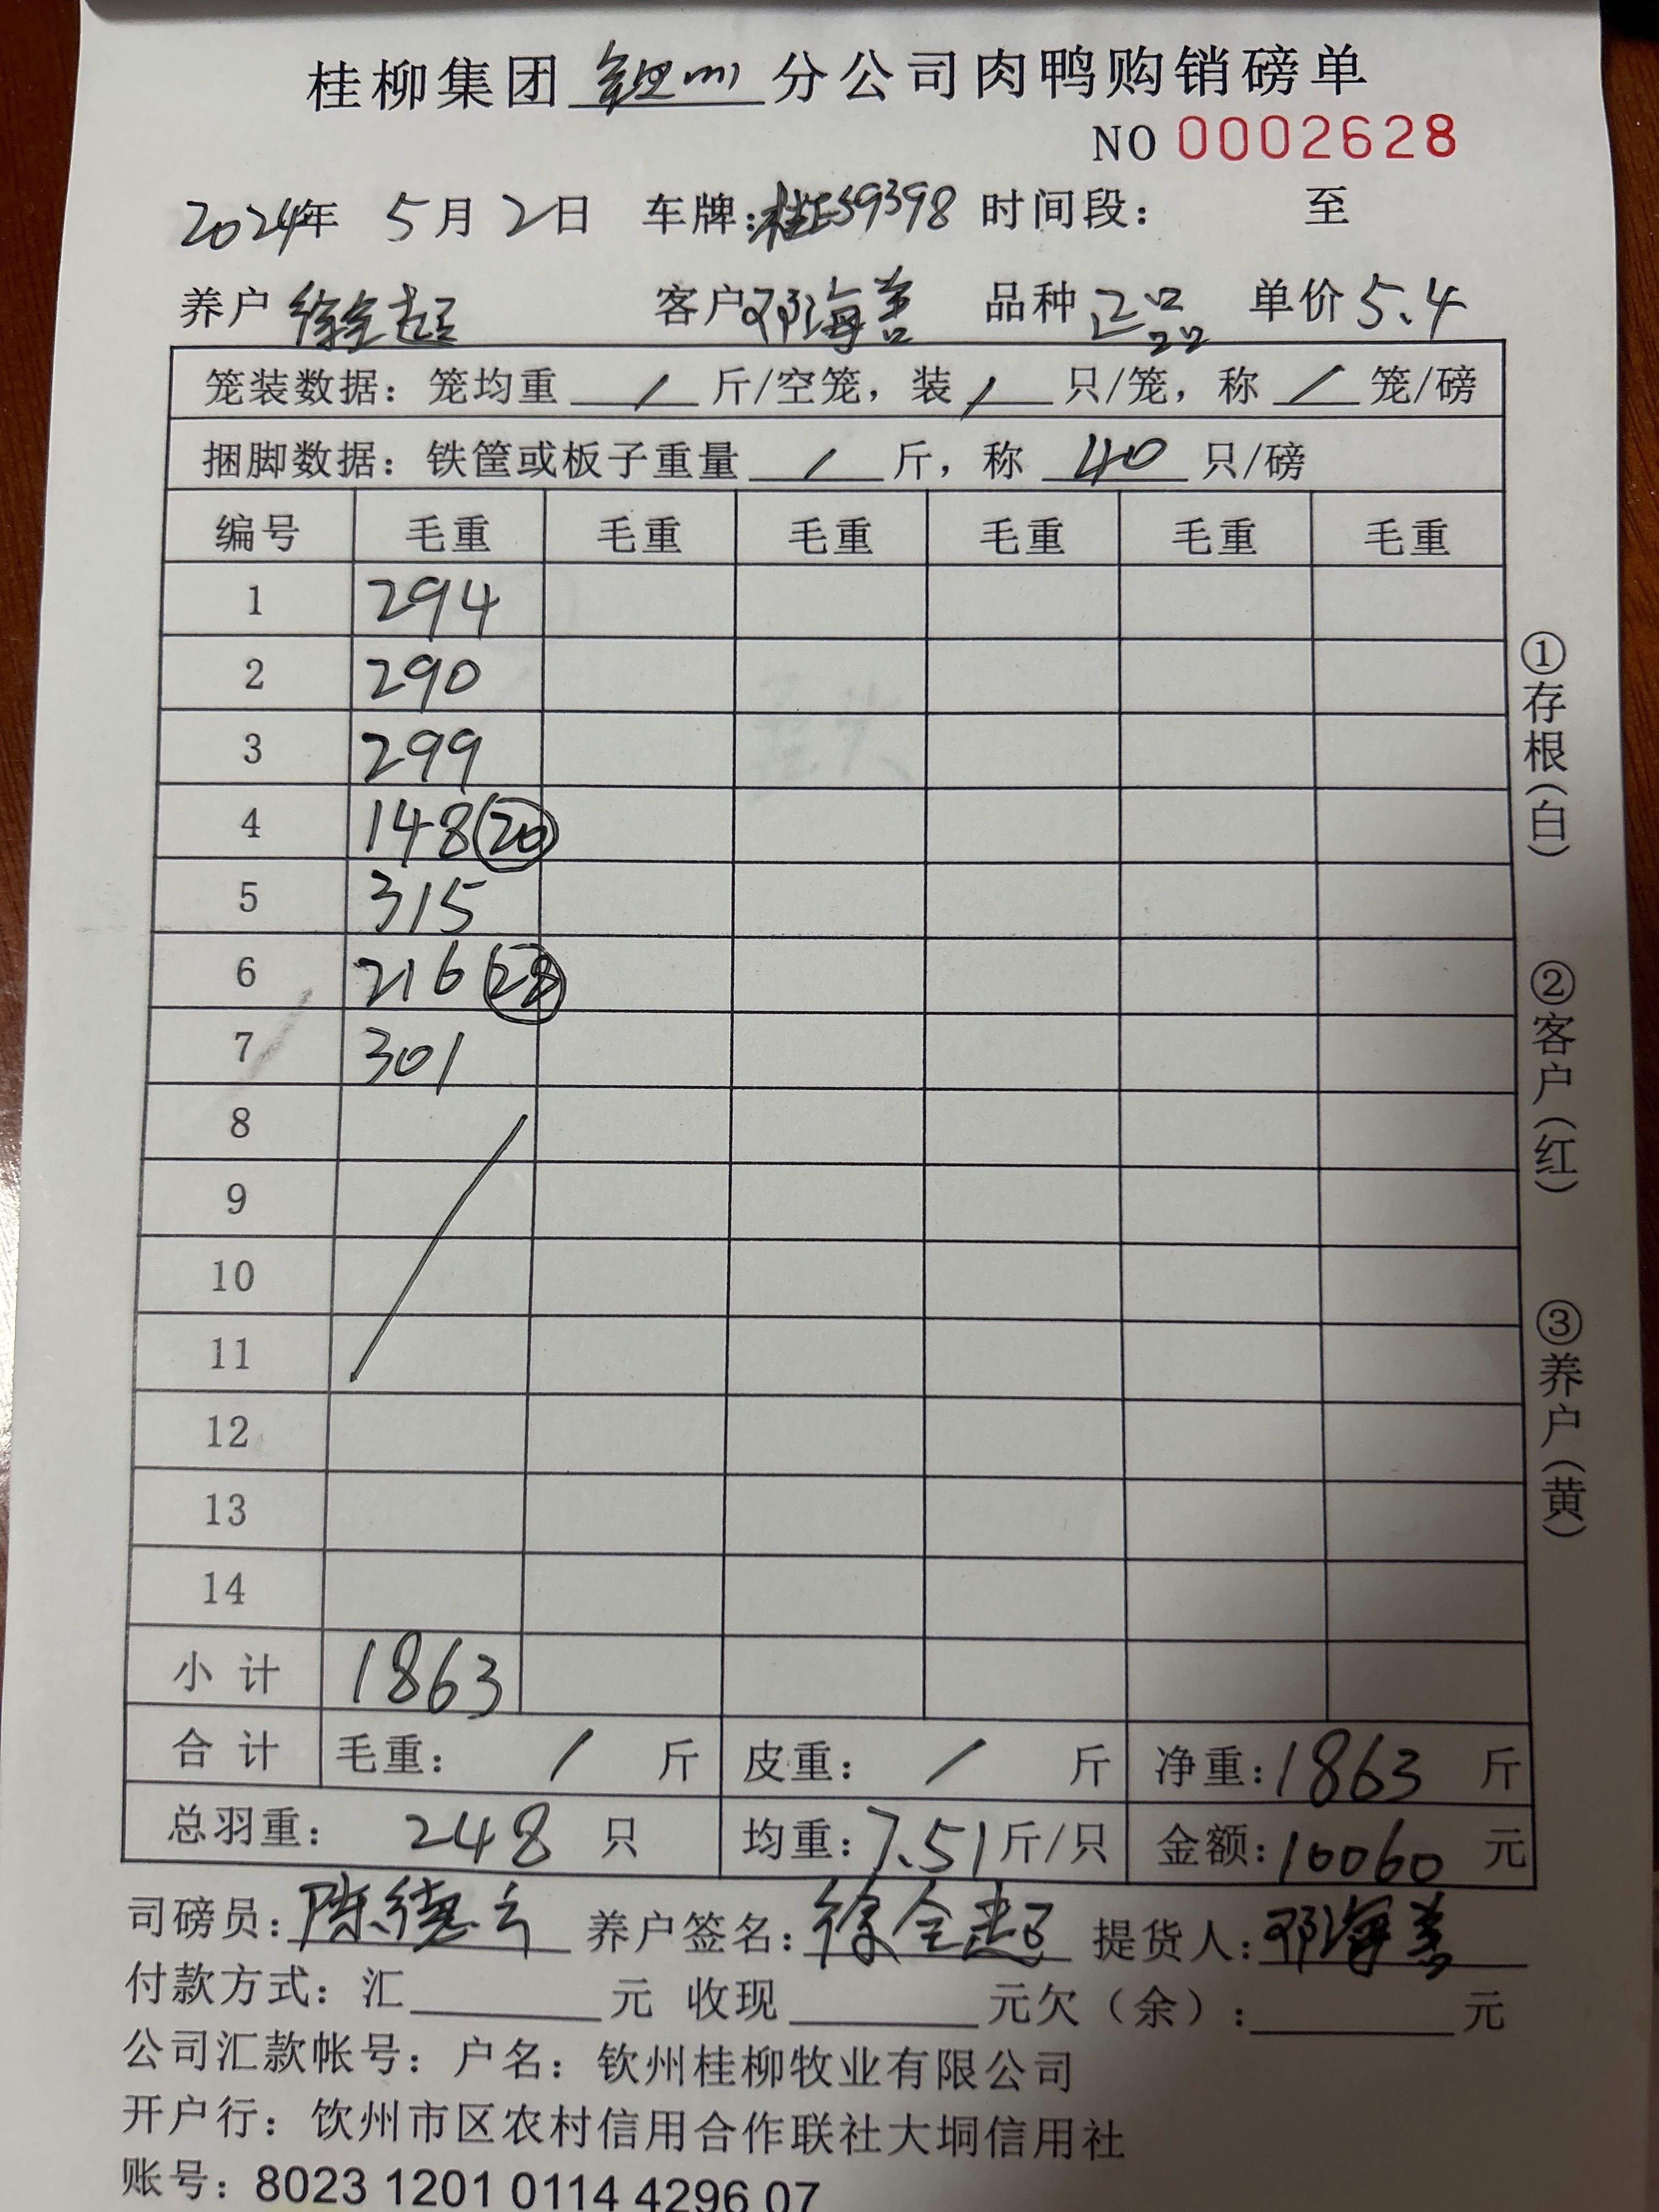 桂柳集团 钦州 分公司肉鸭购销磅单
NO 0002628
2024年 5月 2日 车牌:桂E59398 时间段： 至
养户 徐全超 客户 邓海善 品种 正品 单价 5.4
笼装数据：笼均重 / 斤/空笼，装 / 只/笼，称 / 笼/磅
捆脚数据：铁筐或板子重量 / 斤，称 40 只/磅
编号 毛重 毛重 毛重 毛重 毛重 毛重
1 294
2 290
3 299
4 148 (20)
5 315
6 216 (28)
7 301
8
9
10
11
12
13
14
小计 1863
合计 毛重： / 斤 皮重： / 斤 净重：1863 斤
总羽重： 248 只 均重：7.51斤/只 金额：10060 元
司磅员：陈德云 养户签名：徐全超 提货人：邓海善
付款方式：汇 元 收现 元欠（余）： 元
公司汇款帐号：户名：钦州桂柳牧业有限公司
开户行：饮州市区农村信用合作联社大垌信用社
账号：8023 1201 0114 4296 07
①存根（白）
②客户（红）
③养户（黄）